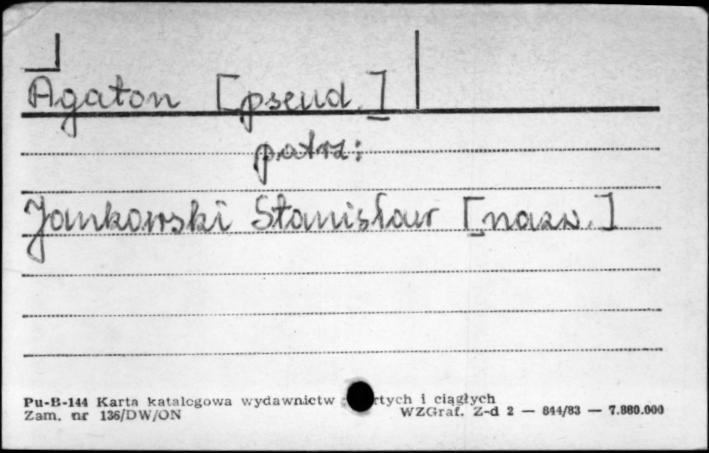 Agaton [pseud.]
patrz:
Jankowski Stanisław [nazw.]
Pu-B-144 Karta katalogowa wydawnictw i ciągłych
Zam. nr 136/DW/ON WZGraf. Z-d 2 — 844/83 — 7.880.000